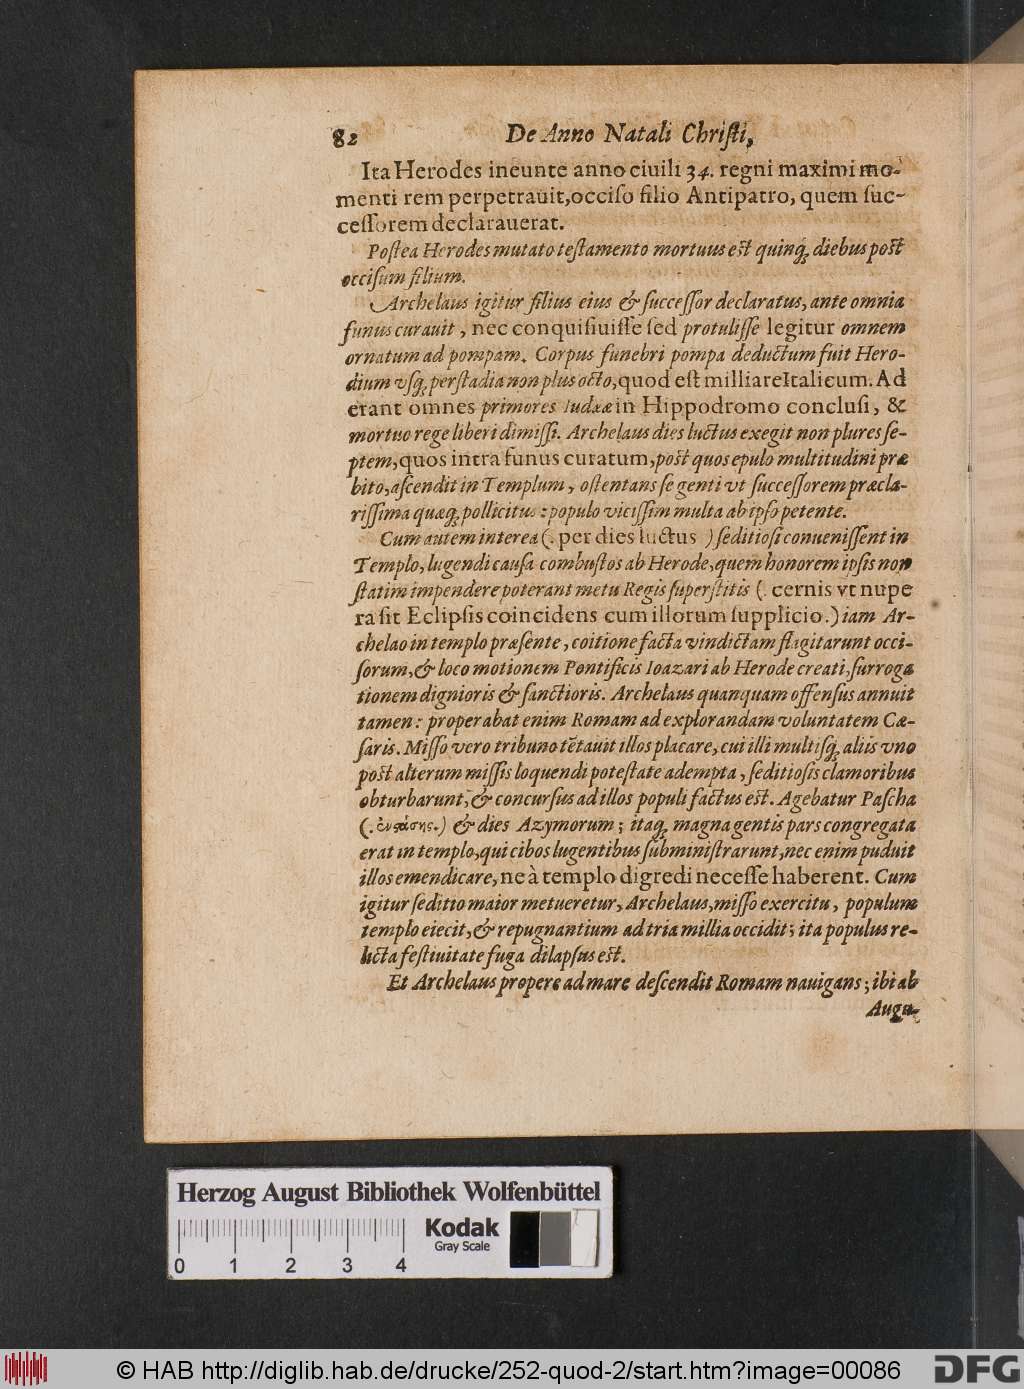 82 De Anno Natali Chriſti,
Ita Herodes ineunte anno ciuili 34. regni maximi mo-
menti rem perpetrauit, occiſo filio Antipatro, quem ſuc-
ceſſorem declarauerat.
Poſtea Herodes mutato teſtamento mortuus eſt quinq; diebus poſt
occiſum filium.
Archelaus igitur filius eius & ſucceſſor declaratus, ante omnia
funus curauit, nec conquiſiuiſſe ſed protuliſſe legitur omnem
ornatum ad pompam. Corpus funebri pompa deductum fuit Hero-
dium vſq; per ſtadia non plus octo, quod eſt milliare Italicum. Ad
erant omnes primores Iudææ in Hippodromo concluſi, &
mortuo rege liberi dimiſſi. Archelaus dies luctus exegit non plures ſe-
ptem, quos intra funus curatum, poſt quos epulo multitudini præ
bito, aſcendit in Templum, oſtentans ſe genti vt ſucceſſorem præcla-
riſſima quæq; pollicitus: populo viciſſim multa ab ipſo petente.
Cum autem interea (. per dies luctus ) ſeditioſi conueniſſent in
Templo, lugendi cauſa combuſtos ab Herode, quem honorem ipſis non
ſtatim impendere poterant metu Regis ſuperſtitis (. cernis vt nupe
ra ſit Eclipſis coincidens cum illorum ſupplicio.) iam Ar-
chelao in templo præſente, coitione facta vindictam flagitarunt occi-
ſorum, & loco motionem Pontificis Ioazari ab Herode creati, ſurroga
tionem dignioris & ſanctioris. Archelaus quanquam offenſus annuit
tamen: properabat enim Romam ad explorandam voluntatem Cæ-
ſaris. Miſſo vero tribuno tẽtauit illos placare, cui illi multiſq; aliis vno
poſt alterum miſſis loquendi poteſtate adempta, ſeditioſis clamoribus
obturbarunt, & concurſus ad illos populi factus eſt. Agebatur Paſcha
(. ἐνστάσης.) & dies Azymorum; itaq; magna gentis pars congregata
erat in templo, qui cibos lugentibus ſubminiſtrarunt, nec enim puduit
illos emendicare, ne à templo digredi neceſſe haberent. Cum
igitur ſeditio maior metueretur, Archelaus, miſſo exercitu, populum
templo eiecit, & repugnantium ad tria millia occidit; ita populus re-
licta feſtiuitate fuga dilapſus eſt.
Et Archelaus propere ad mare deſcendit Romam nauigans; ibi ab
Augu-
Herzog August Bibliothek Wolfenbüttel
Kodak
Gray Scale
0 1 2 3 4
© HAB http://diglib.hab.de/drucke/252-quod-2/start.htm?image=00086
DFG